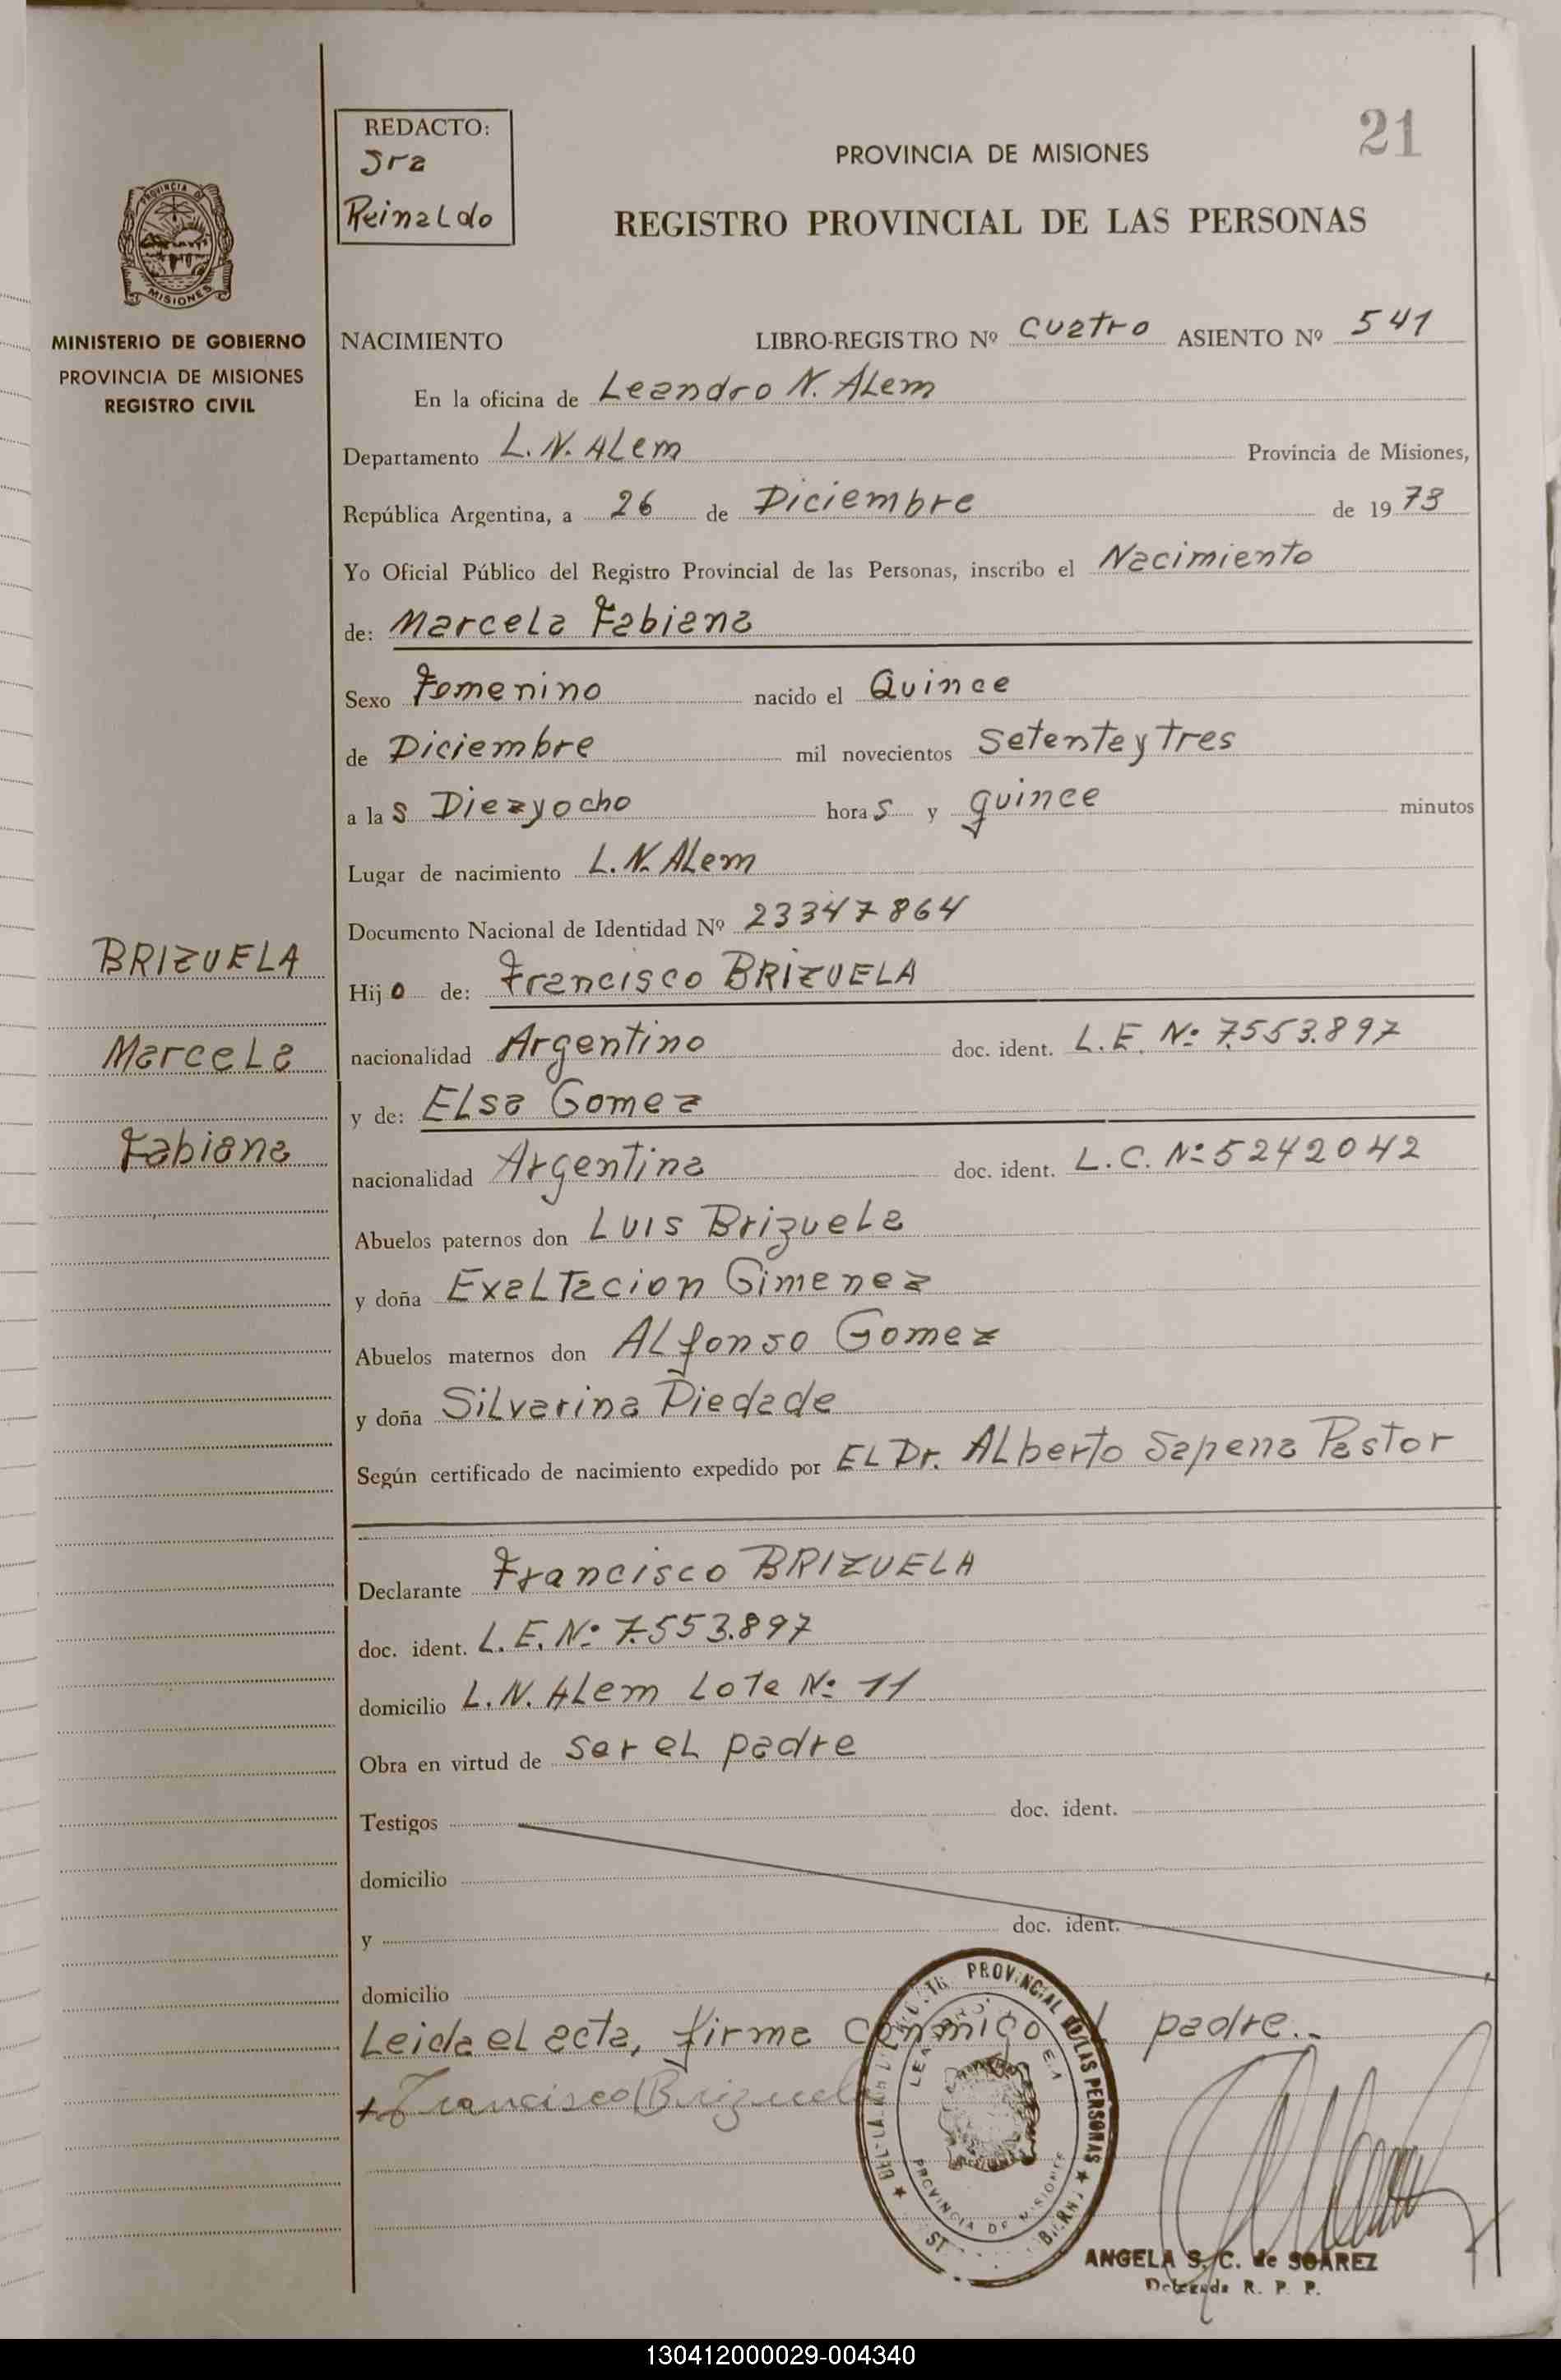 REDACTO:
Sra
Reinaldo
21
PROVINCIA DE MISIONES
REGISTRO PROVINCIAL DE LAS PERSONAS
PROVINCIA DE
MISIONES
MINISTERIO DE GOBIERNO
PROVINCIA DE MISIONES
REGISTRO CIVIL
NACIMIENTO LIBRO-REGISTRO Nº Cuatro ASIENTO Nº 541
En la oficina de Leandro N. Alem
Departamento L. N. Alem Provincia de Misiones,
República Argentina, a 26 de Diciembre de 1973
Yo Oficial Público del Registro Provincial de las Personas, inscribo el Nacimiento
de: Marcela Fabiana
Sexo Femenino nacido el Quince
de Diciembre mil novecientos Setenta y tres
a las Diez y ocho horas y quince minutos
Lugar de nacimiento L. N. Alem
Documento Nacional de Identidad Nº 23347864
BRIZUELA
Marcela
Fabiana
Hijo de: Francisco BRIZUELA
nacionalidad Argentino doc. ident. L. E. Nº 7.553.897
y de: Elsa Gomez
nacionalidad Argentina doc. ident. L. C. Nº 5242042
Abuelos paternos don Luis Brizuela
y doña Exaltacion Gimenez
Abuelos maternos don Alfonso Gomez
y doña Silvarina Piedade
Según certificado de nacimiento expedido por El Dr. Alberto Sapena Pastor
Declarante Francisco BRIZUELA
doc. ident. L. E. Nº 7.553.897
domicilio L. N. Alem Lote Nº 11
Obra en virtud de ser el padre
Testigos doc. ident.
domicilio
y doc. ident.
domicilio
Leida el acta, firma conmigo el padre..
Francisco Brizuela
PROVINCIAL DE LAS PERSONAS
PROVINCIA DE MISIONES
ANGELA S. C. de SOAREZ
Delegada R. P. P.
130412000029-004340